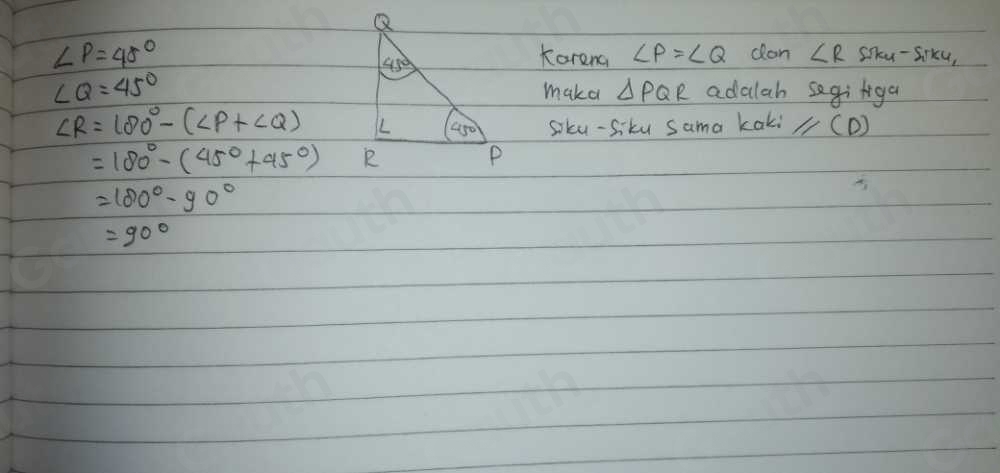 ∠P = 45°
∠Q = 45°
∠R = 180° - (∠P + ∠Q)
= 180° - (45° + 45°)
= 180° - 90°
= 90°
Q
45°
45°
R
P
Karena ∠P = ∠Q dan ∠R siku-siku,
maka ΔPQR adalah segitiga
siku-siku sama kaki // (D)